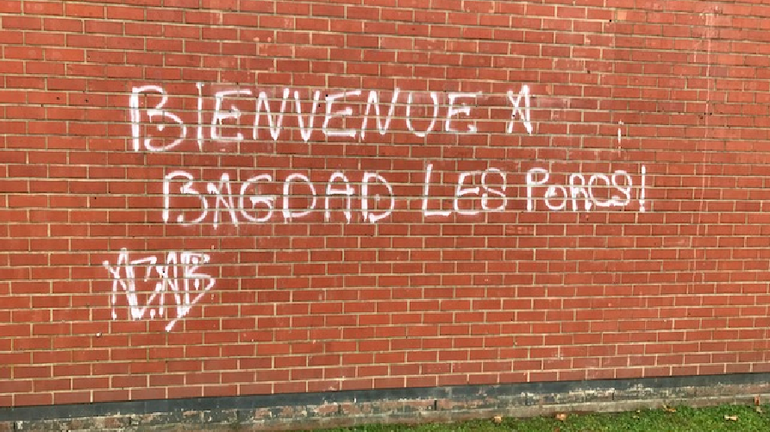 BIENVENUE A
BAGDAD LES PORCS!
ACAB